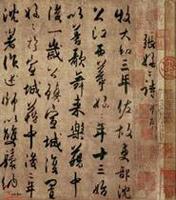 張好〻詩 并序
牧大和三年佐故吏部沈
公江西幕好〻年十三始
以善歌舞來樂籍中
後一歲公鎮宣城復置
好〻於宣城籍中後
沈著作述師以雙鬟納